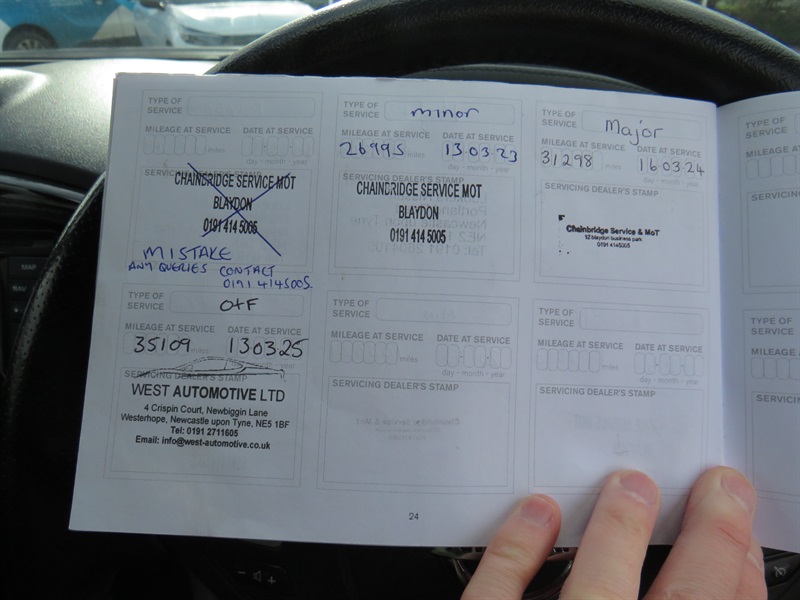 TYPE OF
SERVICE
MILEAGE AT SERVICE
DATE AT SERVICE
miles
day - month - year
SERVICING DEALER'S STAMP
CHAINBRIDGE SERVICE MOT
BLAYDON
0191 414 5005
MISTAKE
ANY QUERIES CONTACT
0191 4145005.
TYPE OF
SERVICE
minor
MILEAGE AT SERVICE
DATE AT SERVICE
26995 miles
13.03.23
day - month - year
CHAINBRIDGE SERVICE MOT
BLAYDON
0191 414 5005
TYPE OF
SERVICE
Major
MILEAGE AT SERVICE
DATE AT SERVICE
31298 miles
16.03.24
day - month - year
SERVICING DEALER'S STAMP
Chainbridge Service & MoT
12 blaydon business park
0191 414 5005
TYPE OF
SERVICE
MILEAGE
SERVICING
TYPE OF
SERVICE
O+F
MILEAGE AT SERVICE
DATE AT SERVICE
35109 miles
130325
SERVICING DEALER'S STAMP
WEST AUTOMOTIVE LTD
4 Crispin Court, Newbiggin Lane
Westerhope, Newcastle upon Tyne, NE5 1BF
Tel: 0191 2711605
Email: info@west-automotive.co.uk
TYPE OF
SERVICE
MILEAGE AT SERVICE
DATE AT SERVICE
miles
day - month - year
SERVICING DEALER'S STAMP
TYPE OF
SERVICE
MILEAGE AT SERVICE
DATE AT SERVICE
miles
day - month - year
SERVICING DEALER'S STAMP
TYPE OF
SERVICE
MILEAGE A
SERVICIN
24
MAP
NAV